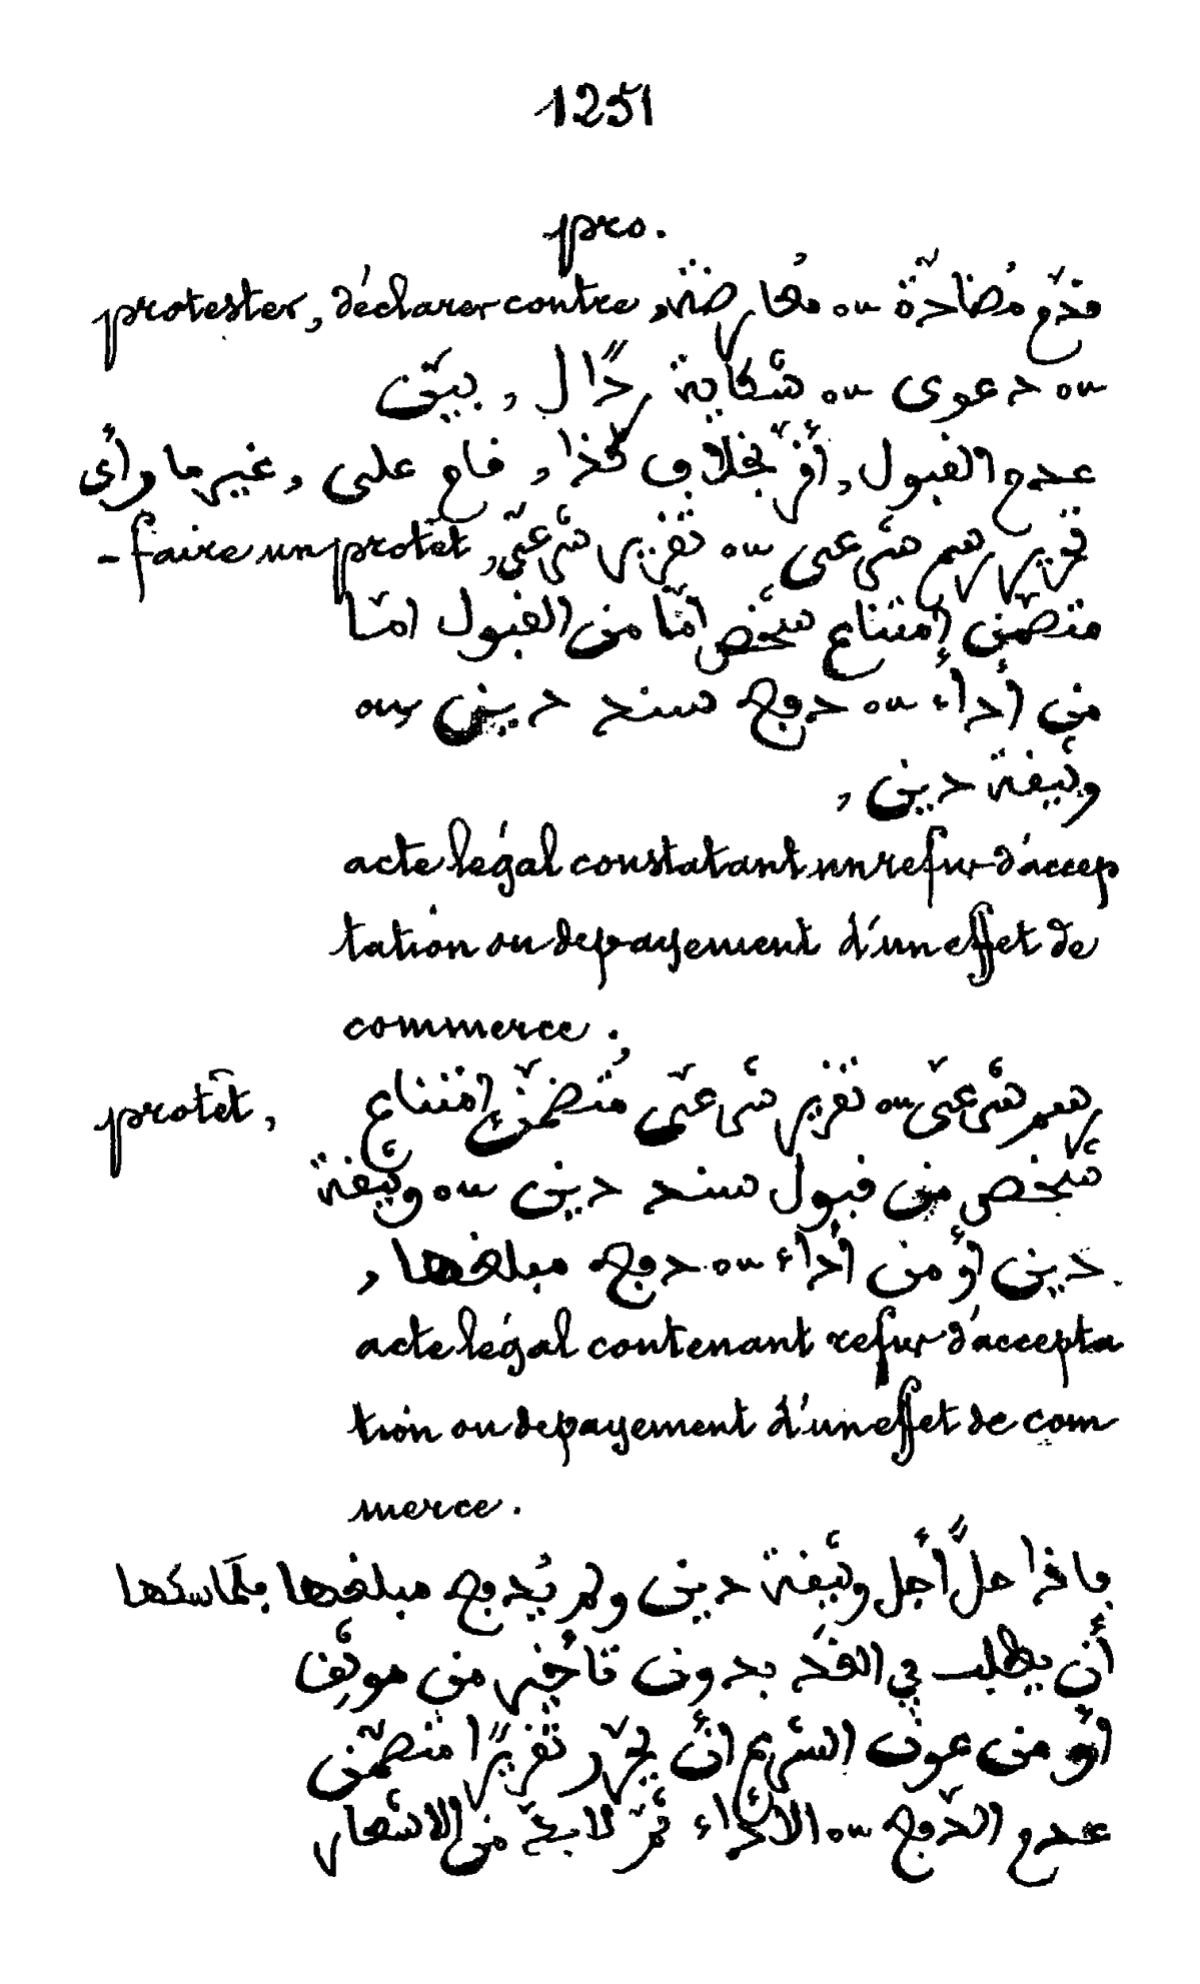 1251
pro.
protester, déclarer contre, قدّم مُضادّة ou مُعارضة,
ou دعوى ou شكاية ردًّا ل, بيّن
عدم القبول, أقرّ بخلاف كذا, قام على, غير ما رأى
- faire un protêt, تحرير رسم شرعى ou تقرير شرعىّ,
متضمّن إمتناع شخص امّا من القبول امّا
من أداء ou دفع سند دين ou
وثيقة دين,
acte légal constatant un refus d'accep
tation ou de payement d'un effet de
commerce.
protêt, رسم شرعىّ ou تقرير شرعىّ مُتضمّن إمتناع
شخص من قبول سند دين ou وثيقة
دين أو من أداء ou دفع مبلغها,
acte légal contenant refus d'accepta
tion ou de payement d'un effet de com
merce.
فاذا حلّ أجل وثيقة دين ولم يُدفع مبلغها فلماسكها
أن يطلب في الغد بدون تأخير من موثِّق
أو من عون الشرع أن يحرّر تقريرًا متضمّن
عدم الدّفع ou الأداء ثمّ لا بدّ من الاشعار